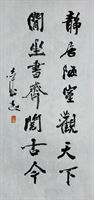 靜居陋室觀天下
閒坐書齋閱古今